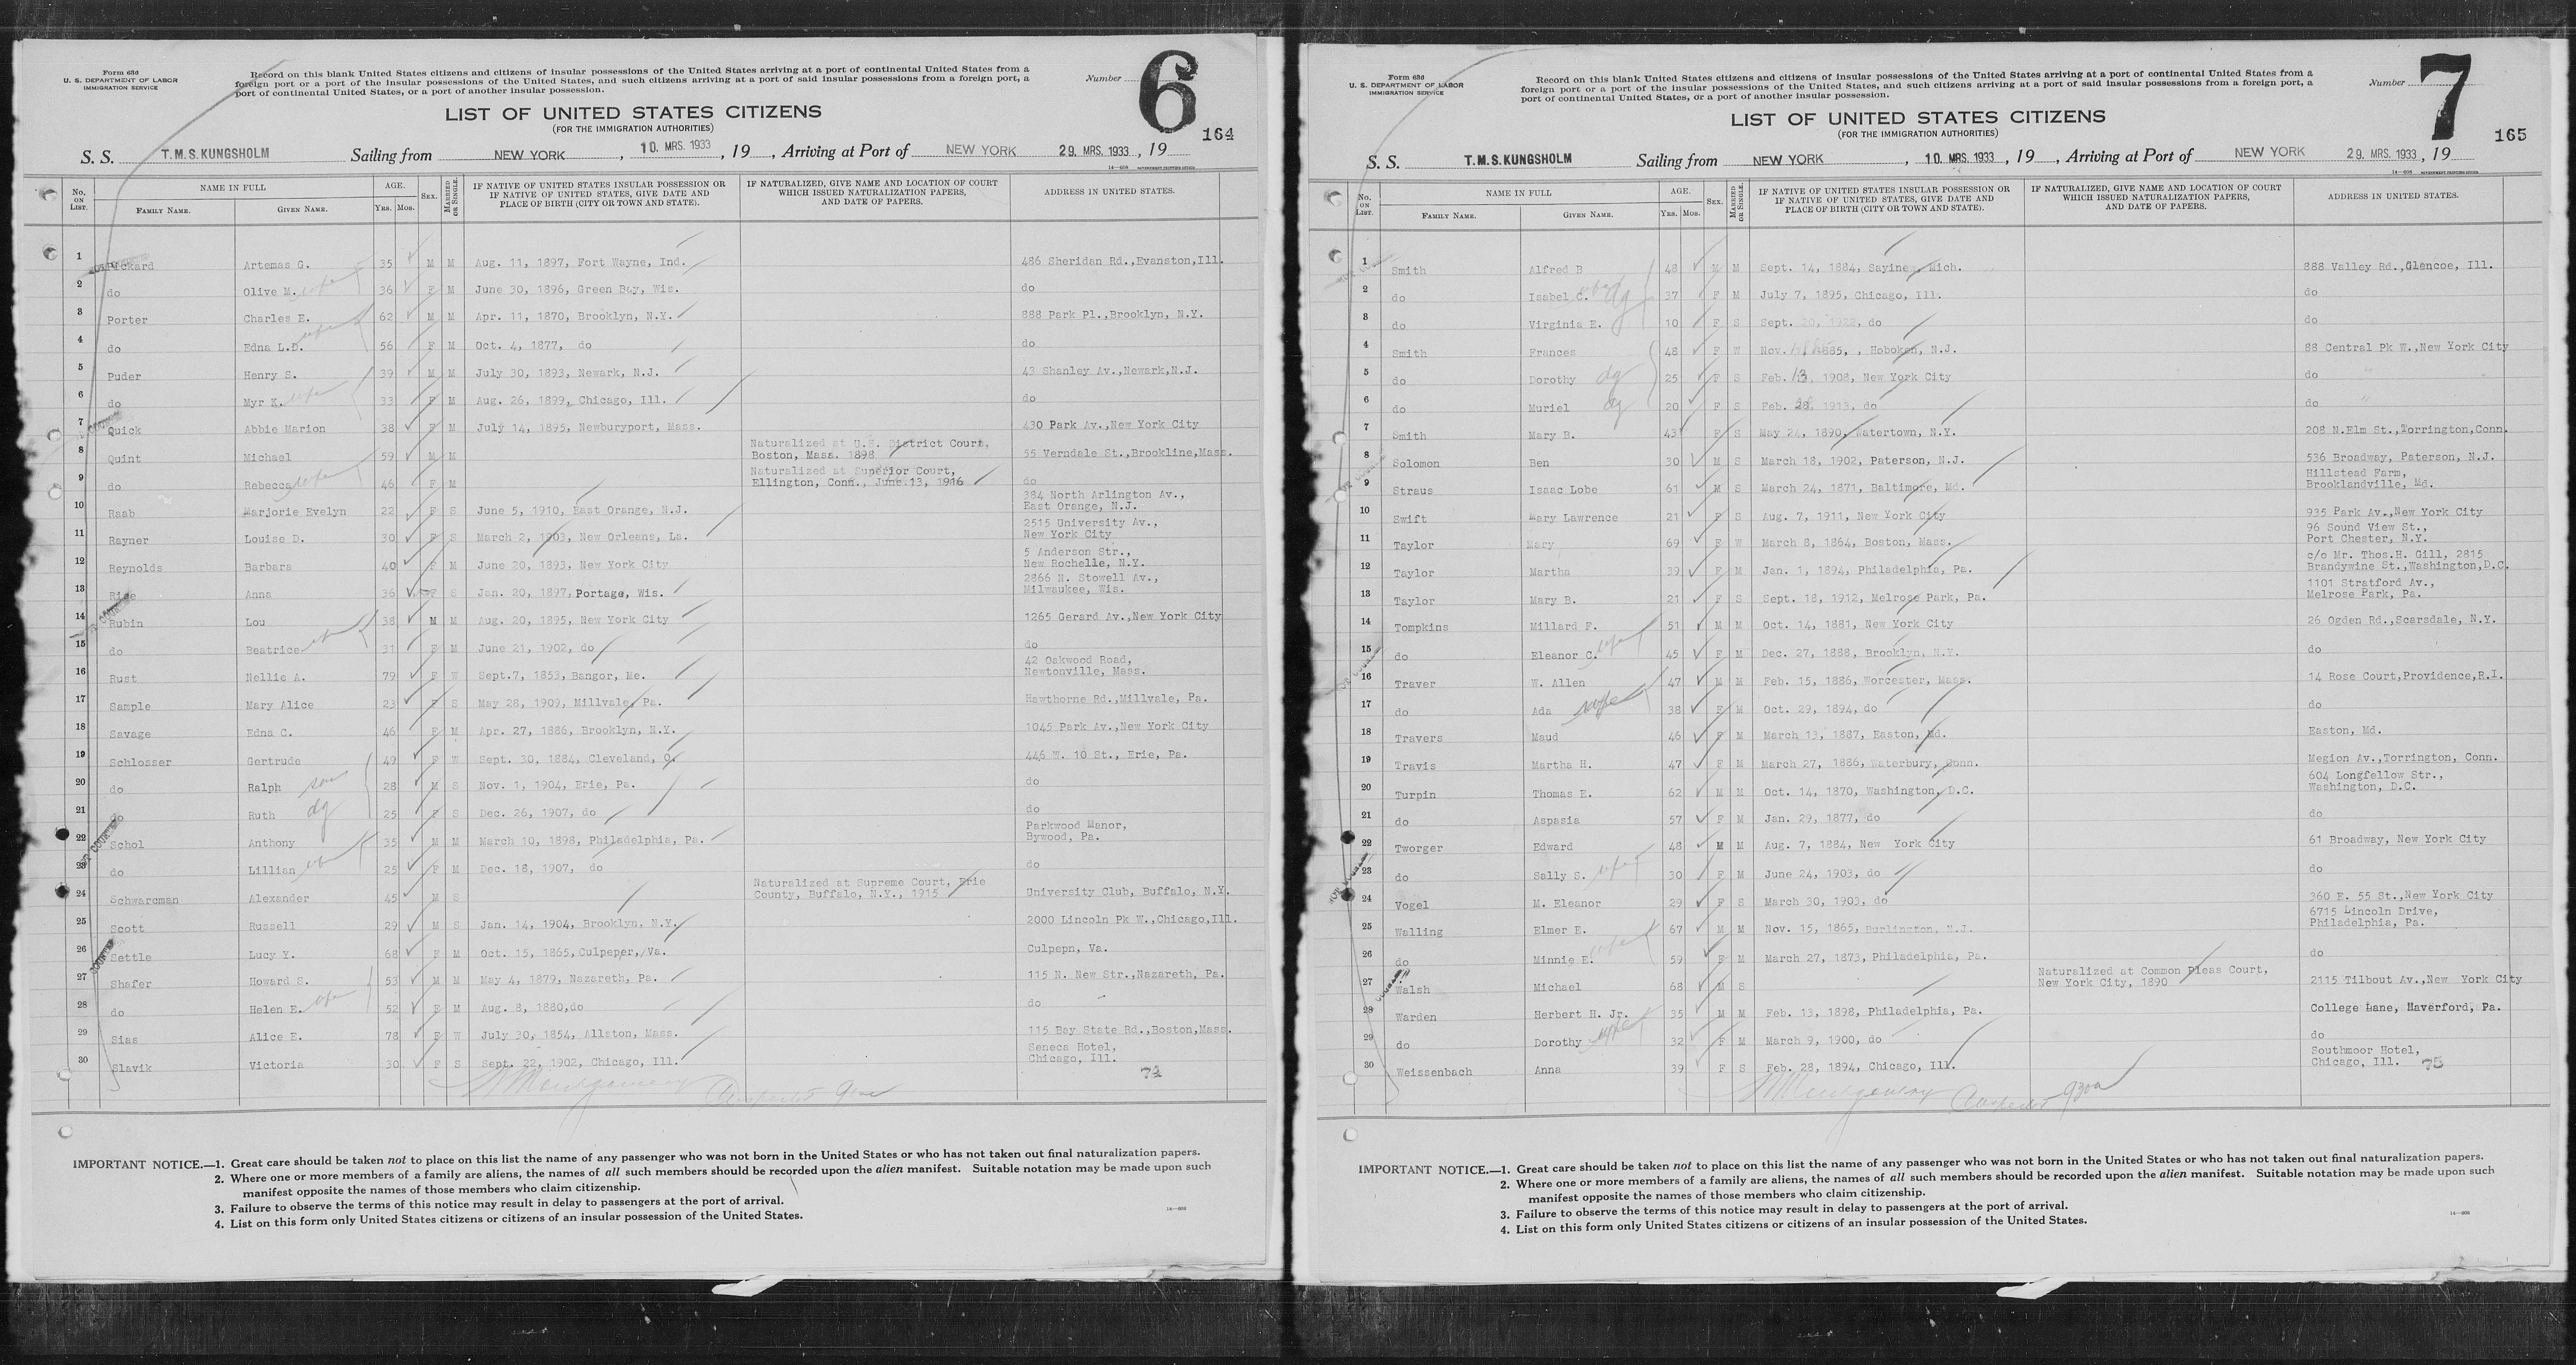 Form 630
U. S. DEPARTMENT OF LABOR
IMMIGRATION SERVICE
Record on this blank United States citizens and citizens of insular possessions of the United States arriving at a port of continental United States from a
foreign port or a port of the insular possessions of the United States, and such citizens arriving at a port of said insular possessions from a foreign port, a
port of continental United States, or a port of another insular possession.
Number 6
LIST OF UNITED STATES CITIZENS
(FOR THE IMMIGRATION AUTHORITIES)
164
S. S. T.M.S. KUNGSHOLM Sailing from NEW YORK, 10. MRS. 1933, 19 , Arriving at Port of NEW YORK 29. MRS. 1933, 19
No. ON LIST. NAME IN FULL FAMILY NAME. GIVEN NAME. AGE. YRS. MOS. SEX. MARRIED OR SINGLE. IF NATIVE OF UNITED STATES INSULAR POSSESSION OR IF NATIVE OF UNITED STATES, GIVE DATE AND PLACE OF BIRTH (CITY OR TOWN AND STATE). IF NATURALIZED, GIVE NAME AND LOCATION OF COURT WHICH ISSUED NATURALIZATION PAPERS, AND DATE OF PAPERS. ADDRESS IN UNITED STATES.
1 Pickard Artemas G. 35 M M Aug. 11, 1897, Fort Wayne, Ind. 486 Sheridan Rd.,Evanston,Ill.
2 do Olive M. wife 36 F M June 30, 1896, Green Bay, Wis. do
3 Porter Charles E. 62 M M Apr. 11, 1870, Brooklyn, N.Y. 888 Park Pl.,Brooklyn, N.Y.
4 do Edna L.D. wife 56 F M Oct. 4, 1877, do do
5 Puder Henry S. 39 M M July 30, 1893, Newark, N.J. 43 Shanley Av.,Newark,N.J.
6 do Myr K. wife 33 F M Aug. 26, 1899, Chicago, Ill. do
7 Quick Abbie Marion 38 F M July 14, 1895, Newburyport, Mass. 430 Park Av.,New York City
8 Quint Michael 59 M M Naturalized at U.S. District Court, Boston, Mass. 1898 55 Verndale St.,Brookline,Mass.
9 do Rebecca wife 46 F M Naturalized at Superior Court, Ellington, Conn., June 13, 1916 do
10 Raab Marjorie Evelyn 22 F S June 5, 1910, East Orange, N.J. 384 North Arlington Av., East Orange, N.J.
11 Rayner Louise D. 30 F S March 2, 1903, New Orleans, La. 2515 University Av., New York City
12 Reynolds Barbara 40 F M June 20, 1893, New York City 5 Anderson Str., New Rochelle, N.Y.
13 Rice Anna 36 F S Jan. 20, 1897, Portage, Wis. 2866 N. Stowell Av., Milwaukee, Wis.
14 Rubin Lou 38 M M Aug. 20, 1895, New York City 1265 Gerard Av.,New York City
15 do Beatrice wife 31 F M June 21, 1902, do do
16 Rust Nellie A. 79 F W Sept.7, 1853, Bangor, Me. 42 Oakwood Road, Newtonville, Mass.
17 Sample Mary Alice 23 F S May 28, 1909, Millvale, Pa. Hawthorne Rd.,Millvale, Pa.
18 Savage Edna C. 46 F M Apr. 27, 1886, Brooklyn, N.Y. 1045 Park Av.,New York City
19 Schlosser Gertrude 49 F W Sept. 30, 1884, Cleveland, O. 446 W. 10 St., Erie, Pa.
20 do Ralph son 28 M S Nov. 1, 1904, Erie, Pa. do
21 do Ruth dg 25 F S Dec. 26, 1907, do do
22 Schol Anthony 35 M M March 10, 1898, Philadelphia, Pa. Parkwood Manor, Bywood, Pa.
23 do Lillian wife 25 F M Dec. 18, 1907, do do
24 Schwarcman Alexander 45 M S Naturalized at Supreme Court, Erie County, Buffalo, N.Y., 1915 University Club, Buffalo, N.Y.
25 Scott Russell 29 M S Jan. 14, 1904, Brooklyn, N.Y. 2000 Lincoln Pk W.,Chicago,Ill.
26 Settle Lucy Y. 68 F M Oct. 15, 1865, Culpeper, Va. Culpepn, Va.
27 Shafer Howard S. 53 M M May 4, 1879, Nazareth, Pa. 115 N. New Str.,Nazareth, Pa.
28 do Helen E. wife 52 F M Aug. 8, 1880,do do
29 Sias Alice E. 78 F W July 30, 1854, Allston, Mass. 115 Bay State Rd.,Boston,Mass.
30 Slavik Victoria 30 F S Sept. 22, 1902, Chicago, Ill. Seneca Hotel, Chicago, Ill.
74
Montgomery
IMPORTANT NOTICE.—1. Great care should be taken not to place on this list the name of any passenger who was not born in the United States or who has not taken out final naturalization papers.
2. Where one or more members of a family are aliens, the names of all such members should be recorded upon the alien manifest. Suitable notation may be made upon such
manifest opposite the names of those members who claim citizenship.
3. Failure to observe the terms of this notice may result in delay to passengers at the port of arrival.
4. List on this form only United States citizens or citizens of an insular possession of the United States.
14—608
Form 630
U. S. DEPARTMENT OF LABOR
IMMIGRATION SERVICE
Record on this blank United States citizens and citizens of insular possessions of the United States arriving at a port of continental United States from a
foreign port or a port of the insular possessions of the United States, and such citizens arriving at a port of said insular possessions from a foreign port, a
port of continental United States, or a port of another insular possession.
Number 7
LIST OF UNITED STATES CITIZENS
(FOR THE IMMIGRATION AUTHORITIES)
165
S. S. T.M.S. KUNGSHOLM Sailing from NEW YORK , 10. MRS. 1933 , 19 , Arriving at Port of NEW YORK 29. MRS. 1933 , 19
No. ON LIST. NAME IN FULL FAMILY NAME. GIVEN NAME. AGE. YRS. MOS. SEX. MARRIED OR SINGLE. IF NATIVE OF UNITED STATES INSULAR POSSESSION OR IF NATIVE OF UNITED STATES, GIVE DATE AND PLACE OF BIRTH (CITY OR TOWN AND STATE). IF NATURALIZED, GIVE NAME AND LOCATION OF COURT WHICH ISSUED NATURALIZATION PAPERS, AND DATE OF PAPERS. ADDRESS IN UNITED STATES.
1 Smith Alfred B 48 M M Sept. 14, 1884, Sayine, Mich. 888 Valley Rd.,Glencoe, Ill.
2 do Isabel C. 37 F M July 7, 1895, Chicago, Ill. do
3 do Virginia E. dg 10 F S Sept. 20, 1922, do do
4 Smith Frances 48 F W Nov. 1885, , Hoboken, N.J. 88 Central Pk W.,New York City
5 do Dorothy dg 25 F S Feb. 13, 1908, New York City do
6 do Muriel dg 20 F S Feb. 28, 1913, do do
7 Smith Mary B. 43 F S May 24, 1890, Watertown, N.Y. 208 N.Elm St.,Torrington,Conn.
8 Solomon Ben 30 M S March 18, 1902, Paterson, N.J. 536 Broadway, Paterson, N.J.
9 Straus Isaac Lobe 61 M S March 24, 1871, Baltimore, Md. Hillstead Farm, Brooklandville, Md.
10 Swift Mary Lawrence 21 F S Aug. 7, 1911, New York City 935 Park Av.,New York City
11 Taylor Mary 69 F W March 8, 1864, Boston, Mass. 96 Sound View St., Port Chester, N.Y.
12 Taylor Martha 39 F M Jan. 1, 1894, Philadelphia, Pa. c/o Mr. Thos.H. Gill, 2815 Brandywine St.,Washington,D.C.
13 Taylor Mary B. 21 F S Sept. 18, 1912, Melrose Park, Pa. 1101 Stratford Av., Melrose Park, Pa.
14 Tompkins Millard F. 51 M M Oct. 14, 1881, New York City 26 Ogden Rd.,Scarsdale, N.Y.
15 do Eleanor C. wife 45 F M Dec. 27, 1888, Brooklyn, N.Y. do
16 Traver W. Allen 47 M M Feb. 15, 1886, Worcester, Mass. 14 Rose Court,Providence,R.I.
17 do Ada wife 38 F M Oct. 29, 1894, do do
18 Travers Maud 46 F M March 13, 1887, Easton, Md. Easton, Md.
19 Travis Martha H. 47 F M March 27, 1886, Waterbury, Conn. Megion Av.,Torrington, Conn.
20 Turpin Thomas E. 62 M M Oct. 14, 1870, Washington, D.C. 604 Longfellow Str., Washington, D.C.
21 do Aspasia 57 F M Jan. 29, 1877, do do
22 Tworger Edward 48 M M Aug. 7, 1884, New York City 61 Broadway, New York City
23 do Sally S. wife 30 F M June 24, 1903, do do
24 Vogel M. Eleanor 29 F S March 30, 1903, do 360 E. 55 St.,New York City
25 Walling Elmer E. 67 M M Nov. 15, 1865, Burlington, N.J. 6715 Lincoln Drive, Philadelphia, Pa.
26 do Minnie E. wife 59 F M March 27, 1873, Philadelphia, Pa. do
27 Walsh Michael 68 M S Naturalized at Common Pleas Court, New York City, 1890 2115 Tilbout Av.,New York City
28 Warden Herbert H. Jr. 35 M M Feb. 13, 1898, Philadelphia, Pa. College Lane, Haverford, Pa.
29 do Dorothy wife 32 F M March 9, 1900, do do
30 Weissenbach Anna 39 F S Feb. 28, 1894, Chicago, Ill. Southmoor Hotel, Chicago, Ill.
75
Montgomery
IMPORTANT NOTICE.—1. Great care should be taken not to place on this list the name of any passenger who was not born in the United States or who has not taken out final naturalization papers.
2. Where one or more members of a family are aliens, the names of all such members should be recorded upon the alien manifest. Suitable notation may be made upon such
manifest opposite the names of those members who claim citizenship.
3. Failure to observe the terms of this notice may result in delay to passengers at the port of arrival.
4. List on this form only United States citizens or citizens of an insular possession of the United States.
14—608